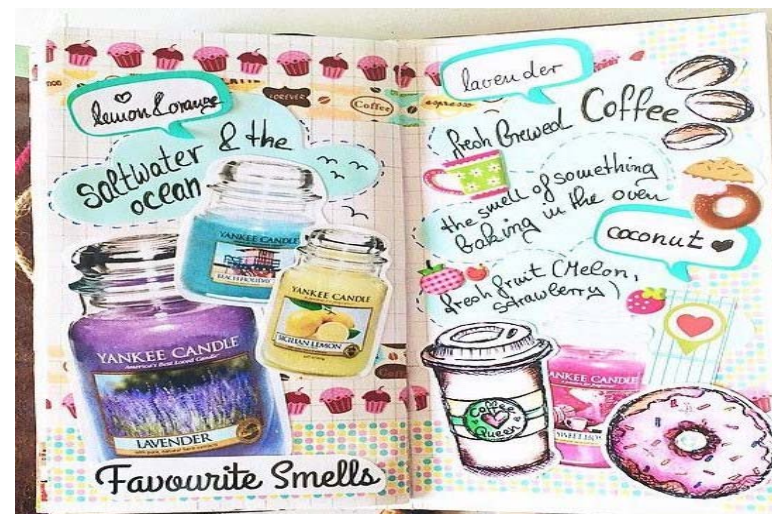 lemon & orange
saltwater & the
ocean
FOREVER
Coffee
YANKEE CANDLE
BEACH HOLIDAY
YANKEE CANDLE
SICILIAN LEMON
YANKEE CANDLE
America's Best Loved Candle
LAVENDER
Favourite Smells
lavender
espresso
fresh Brewed Coffee
the smell of something
baking in the oven
coconut
fresh fruit (Melon,
strawberry)
Coffee
Queen
YANKEE CANDLE